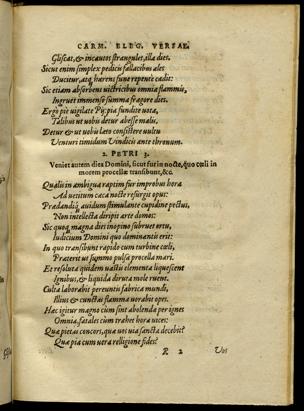 CARM. ELEG. VERSAE.
Gliscat, & incautos strangulet illa dies.
Sicut enim simplex pedicis fallacibus ales
Ducitur, atq; harens fune repentè cadit:
Sic etiam absorbens victricibus omnia flammis,
Ingruet immenso summa fragore dies.
Ergo piè vigilate Pij: pia fundite vota,
Talibus ut vobis detur abesse malis,
Detur & ut vobis lato consistere vultu
Venturi timidum Vindicis ante thronum.
2. PETRI 3.
Veniet autem dies Domini, sicut fur in nocte, quo cœli in
morem procellæ transibunt, &c.
Qualis in ambigua raptim fur improbus hora
Ad veritum cæca nocte resurgit opus:
Prædandiq; avidum stimulante cupidine pectus,
Non intellecta diripit arte domos:
Sic quoq; magna dies inopino subruet ortu,
Iudicium Domini quo dominantis erit:
In quo transibunt rapido cum turbine cœli,
Præterit ut summo pulsa procella mari.
Et resoluta quidem vasti elementa liquescent
Ignibus, & liquida diruta mole ruent.
Culta laborabit pereuntis fabrica mundi,
Illius & cunctas flamma vorabit opes.
Hæc igitur magno cum sint abolenda per ignes
Omnia, fatales cùm trahet hora vices:
Quæ pietas concors, quæ vos via sancta decebit?
Quæ pia cum vera religione fides?
R 2
Vos